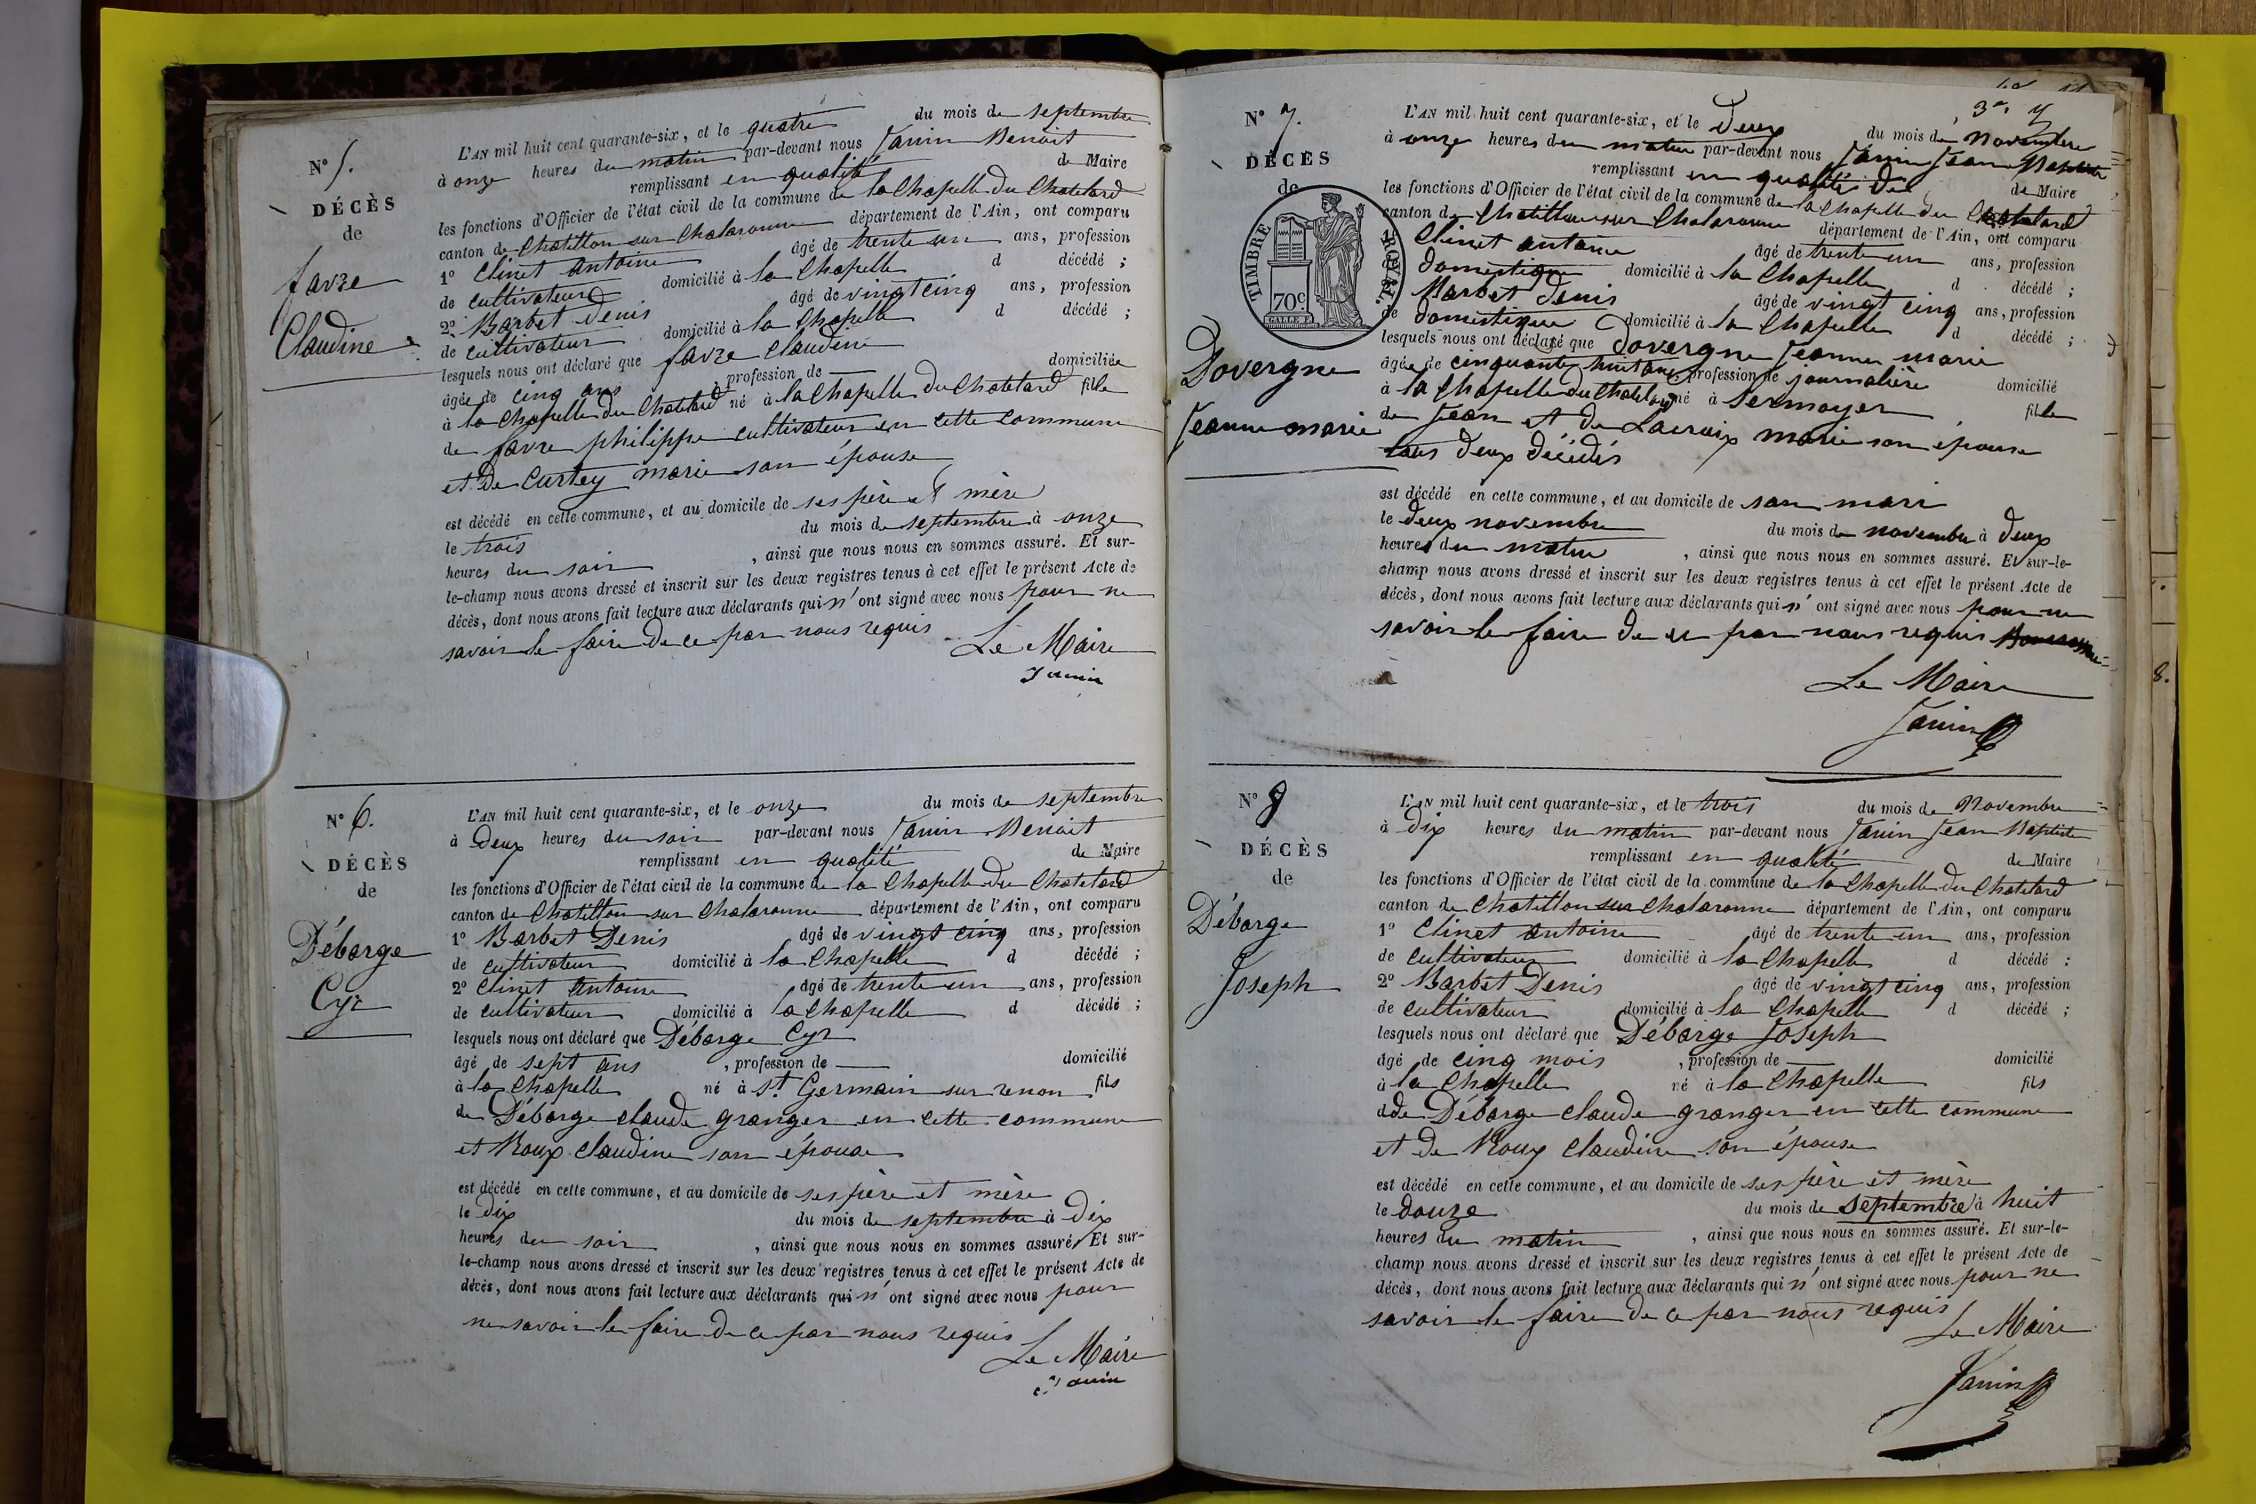 N° 5.
DÉCÈS
de
favre
Claudine
L'AN mil huit cent quarante-six, et le quatre du mois de septembre
à onze heures du matin par-devant nous Janin Benoit
remplissant en qualité de Maire
les fonctions d'Officier de l'état civil de la commune de la Chapelle du Chatelard
canton de Chatillon sur Chalaronne département de l'Ain, ont comparu
1° Clinet antoine âgé de trente un ans, profession
de cultivateur domicilié à la Chapelle d décédé ;
2° Barbet Denis âgé de vingt cinq ans, profession
de cultivateur domicilié à la Chapelle d décédé ;
lesquels nous ont déclaré que favre Claudine
âgée de cinq ans profession de domiciliée
à la Chapelle du Chatelard né à la Chapelle du Chatelard fille
de favre philippe cultivateur en cette commune
et de Curtey marie son épouse
est décédé en cette commune, et au domicile de ses père et mère
le trois du mois de septembre à onze
heures du soir , ainsi que nous nous en sommes assuré. Et sur-
le-champ nous avons dressé et inscrit sur les deux registres tenus à cet effet le présent Acte de
décès, dont nous avons fait lecture aux déclarants qui n'ont signé avec nous pour ne
savoir le faire de ce par nous requis
Le Maire
Janin
N° 6.
DÉCÈS
de
Débarge
Cyr
L'AN mil huit cent quarante-six, et le onze du mois de septembre
à Deux heures du soir par-devant nous Janin Benoit
remplissant en qualité de Maire
les fonctions d'Officier de l'état civil de la commune de la Chapelle du Chatelard
canton de Chatillon sur Chalaronne département de l'Ain, ont comparu
1° Barbet Denis âgé de vingt cinq ans, profession
de cultivateur domicilié à la Chapelle d décédé ;
2° Clinet antoine âgé de trente un ans, profession
de cultivateur domicilié à la Chapelle d décédé ;
lesquels nous ont déclaré que Débarge Cyr
âgé de sept ans , profession de domicilié
à la Chapelle né à St Germain sur renon fils
de Débarge claude granger en cette commune
et Roux claudine son épouse
est décédé en cette commune, et au domicile de ses père et mère
le dix du mois de septembre à Dix
heures du soir , ainsi que nous nous en sommes assuré. Et sur-
le-champ nous avons dressé et inscrit sur les deux registres tenus à cet effet le présent Acte de
décès, dont nous avons fait lecture aux déclarants qui n'ont signé avec nous pour
ne savoir le faire de ce par nous requis
Le Maire
Janin
N° 7.
DÉCÈS
de
TIMBRE ROYAL.
70c
Dovergne
Jeanne marie
L'AN mil huit cent quarante-six, et le Deux du mois de Novembre
à onze heures du matin par-devant nous Janin Jean Baptiste
remplissant en qualité de de Maire
les fonctions d'Officier de l'état civil de la commune de la Chapelle du Chatelard
canton de Chatillon sur Chalaronne département de l'Ain, ont comparu
Clinet antoine âgé de trente un ans, profession
domestique domicilié à la Chapelle d décédé ;
Barbet Denis âgé de vingt cinq ans, profession
de domestique domicilié à la Chapelle d décédé ;
lesquels nous ont déclaré que Dovergne Jeanne marie
âgée de cinquante huit ans, profession de journalière domicilié
à la Chapelle du Chatelard né à Sermoyer fille
de Jean et de Lacroix marie son épouse
tous deux Décédés
est décédé en cette commune, et au domicile de son mari
le deux novembre du mois de novembre à deux
heures du matin , ainsi que nous nous en sommes assuré. Et sur-le-
champ nous avons dressé et inscrit sur les deux registres tenus à cet effet le présent Acte de
décès, dont nous avons fait lecture aux déclarants qui n'ont signé avec nous pour ne
savoir le faire de ce par nous requis
Le Maire
Janin
N° 8
DÉCÈS
de
Débarge
Joseph
L'AN mil huit cent quarante-six, et le trois du mois de Novembre
à Dix heures du matin par-devant nous Janin Jean Baptiste
remplissant en qualité de Maire
les fonctions d'Officier de l'état civil de la commune de la Chapelle du Chatelard
canton de Chatillon sur Chalaronne département de l'Ain, ont comparu
1° Clinet antoine âgé de trente un ans, profession
de cultivateur domicilié à la Chapelle d décédé ;
2° Barbet Denis âgé de vingt cinq ans, profession
de cultivateur domicilié à la Chapelle d décédé ;
lesquels nous ont déclaré que Débarge Joseph
âgé de cinq mois , profession de domicilié
à la Chapelle né à la Chapelle fils
de Débarge claude granger en cette commune
et de Roux claudine son épouse
est décédé en cette commune, et au domicile de ses père et mère
le douze du mois de septembre à huit
heures du matin , ainsi que nous nous en sommes assuré. Et sur-le-
champ nous avons dressé et inscrit sur les deux registres tenus à cet effet le présent Acte de
décès, dont nous avons fait lecture aux déclarants qui n'ont signé avec nous pour ne
savoir le faire de ce par nous requis
Le Maire
Janin
8.